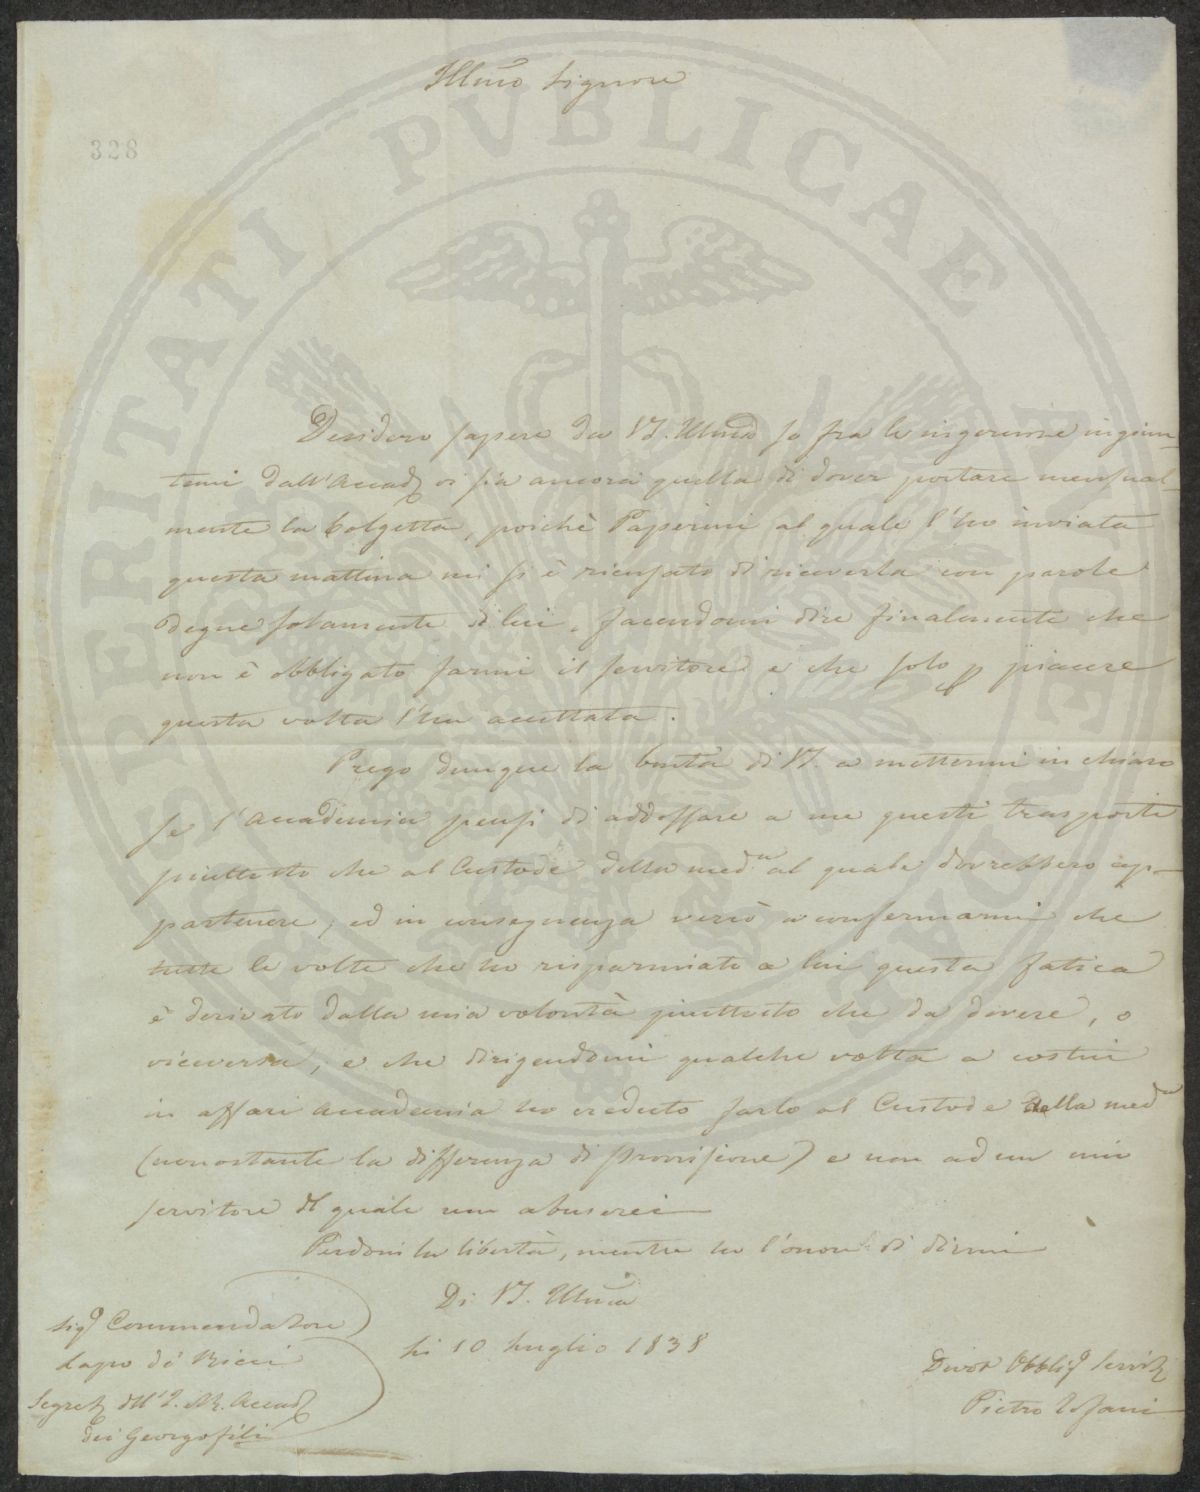 Illmo Signore
328
PROSPERITATI PVBLICAE AVGENDAE
Desidero sapere da VS. Illma se fra le ingerenze ingiun-
temi dall'Accad. vi sia ancora quella di dover portare mensual-
mente la bolgetta, poichè Papirini al quale l'ho inviata
questa mattina mi si è ricusato di riceverla con parole
degne solamente di lui, facendomi dire finalmente che
non è obbligato farmi il servitore e che solo p piacere
questa volta l'ha accettata.
Prego dunque la bontà di VS. a mettermi in chiaro
se l'Accademia pensi di addossare a me questi trasporti
piuttosto che al Custode della meda al quale dovrebbero ap-
partenere; ed in conseguenza verrò a confermarmi che
tutte le volte che ho risparmiato a lui questa fatica
è derivato dalla mia volontà piuttosto che da dovere, o
viceversa; e che dirigendomi qualche volta a costui
in affari accademia ho creduto farlo al Custode della meda
(nonostante la differenza di provvisione) e non ad un mio
servitore del quale non abuserei
Perdoni la libertà, mentre ho l'onore di dirmi
Di VS. Illma
Li 10 Luglio 1838
Sigr Commendatore
Lapo de' Ricci
Segret. dell'I. e R. Accad.
dei Georgofili
Devot Obbligo Servit.
Pietro